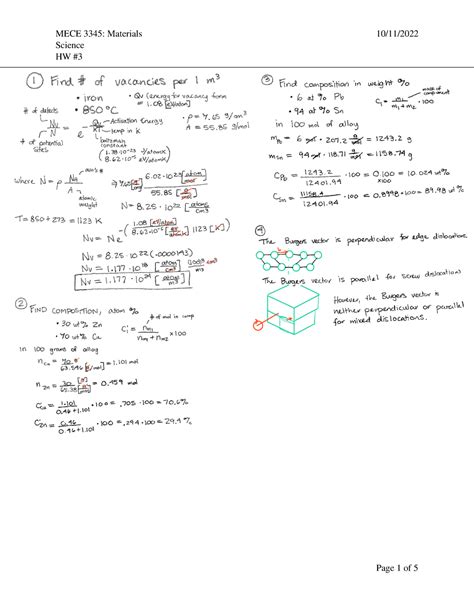 MECE 3345: Materials
Science
HW #3
10/11/2022
① Find # of vacancies per 1 m³
• iron
• 850 °C
• Qv (energy for vacancy form
= 1.08 [eV/atom]
• ρ = 7.65 g/m³
A = 55.85 g/mol
# of defects
Nv/N = e^-Qv/KT
Activation Energy
temp in K
# of potential
sites
boltzman
constant
(1.38·10⁻²³ J/atom·K)
(8.62·10⁻⁵ eV/atom·K)
where N = ρ NA/A
avo's #
atomic
weight
N = 8.25 · 10²² [atoms/cm³]
T = 850 + 273 = 1123 K
Nv = 8.25·10²² (·0000143)
Nv = 1.177·10¹⁸
Nv = 1.177 · 10²⁴ [atom/m³]
② FIND COMPOSITION, atom %
• 30 wt% Zn
• 70 wt% Cu
# of mol in comp
Ci = nm1/nm1 + nm2 × 100
in 100 grams of alloy
nCu = 70 g/63.546 [g/mol] = 1.101 mol
nZn = 30 [g]/65.38 [g/mol] = 0.459 mol
CCu = 1.101/0.46+1.101 · 100 = .705 · 100 = 70.6%
CZn = 0.46/0.46+1.101 · 100 = .294 · 100 = 29.4%
③ Find composition in weight %
• 6 at % Pb
• 94 at % Sn
C1 = m1/m1+m2 · 100
mass of
component
in 100 mol of alloy
mPb = 6 mol · 207.2 g/mol = 1243.2 g
mSn = 94 mol · 118.71 g/mol = 11158.74 g
CPb = 1243.2/12401.94 · 100 = 0.100 · 100 = 10.024 wt%
CSn = 11158.4/12401.94 · 100 = 0.8998 · 100 = 89.98 wt%
④
The Burgers vector is perpendicular for edge dislocations
The Burgers vector is parallel for screw dislocations
However, the Burgers vector is
neither perpendicular or parallel
for mixed dislocations.
Page 1 of 5